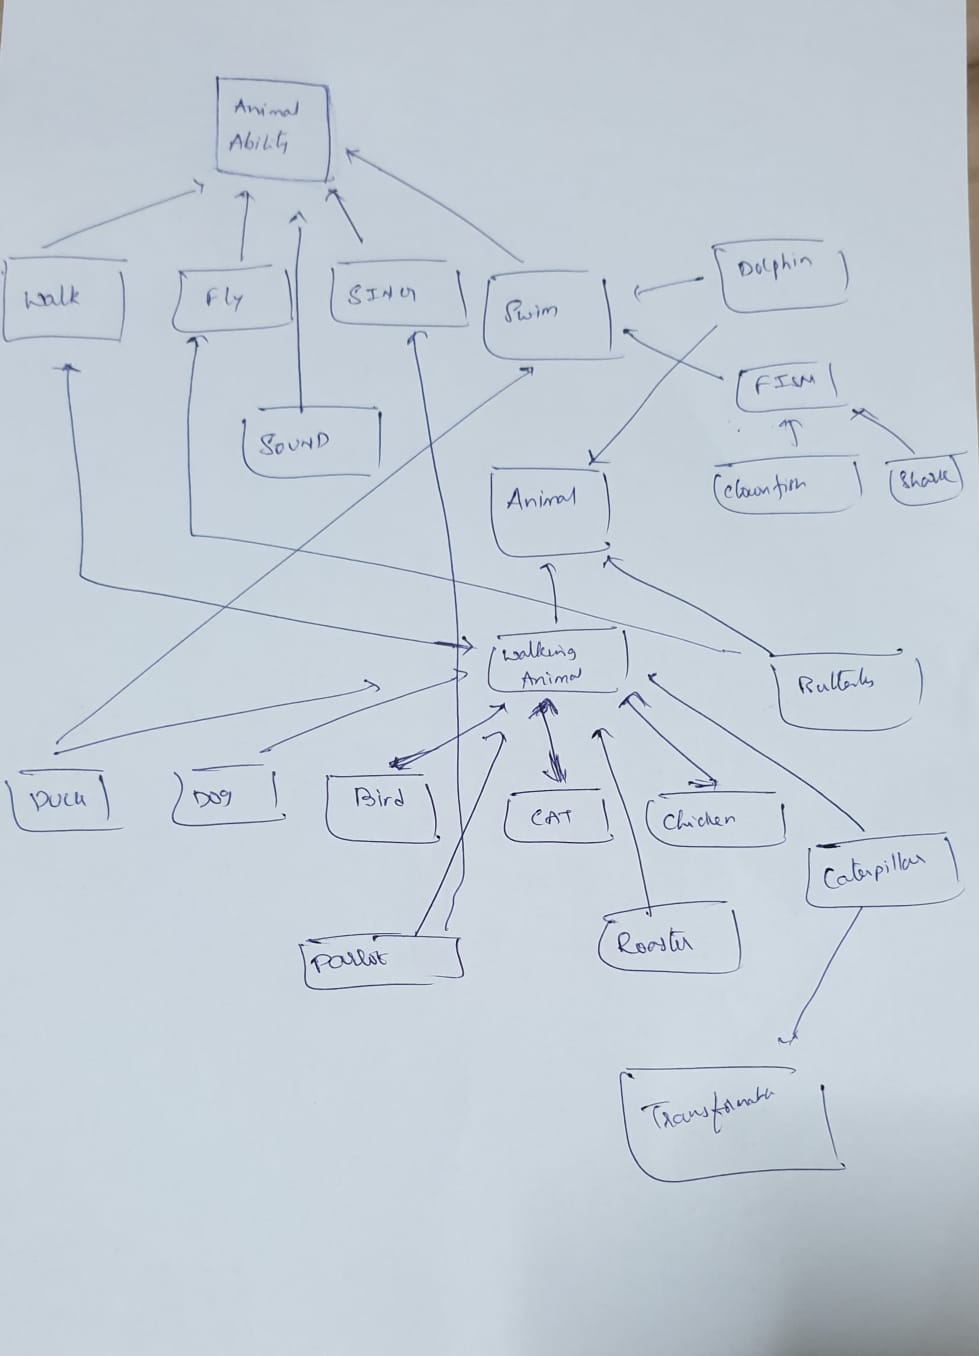 Animal
Ability
Walk
Fly
SING
Swim
Dolphin
FISH
SOUND
Clownfish
Shark
Animal
Walking
Animal
Butterfly
DUCK
DOg
Bird
CAT
Chicken
Caterpillar
Parrot
Rooster